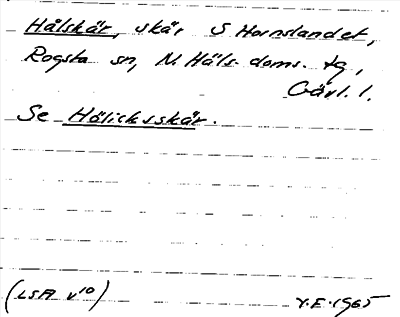 Hålskär, skär S Hornslandet,
Rogsta sn, N. Häls. doms. tg,
Gävl. l.
Se Hölicksskär.
(LSA v10)
Y.E. 1965